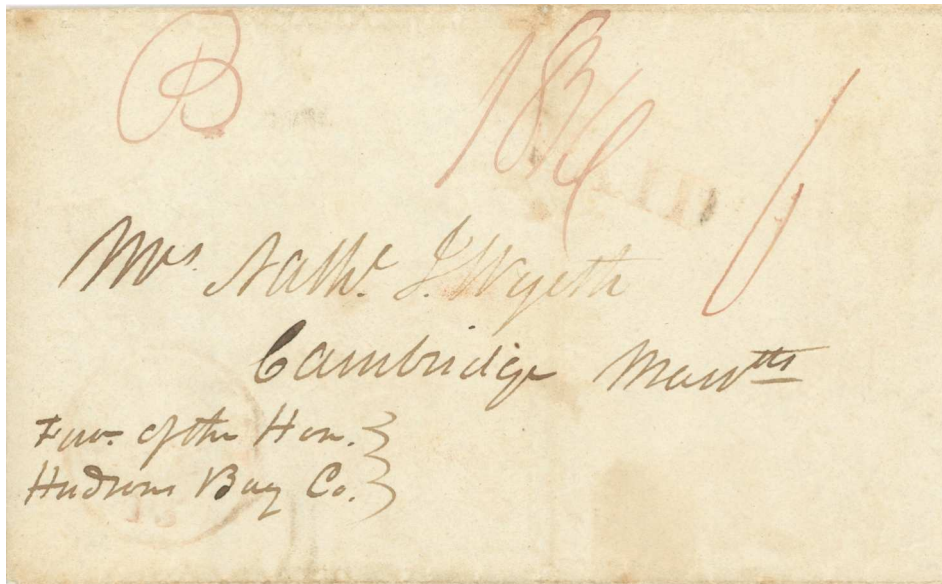 B 18¾ /
Mrs. Nathl. J. Wyeth
Cambridge Masstts
Favr. of the Hon.
Hudsons Bay Co.